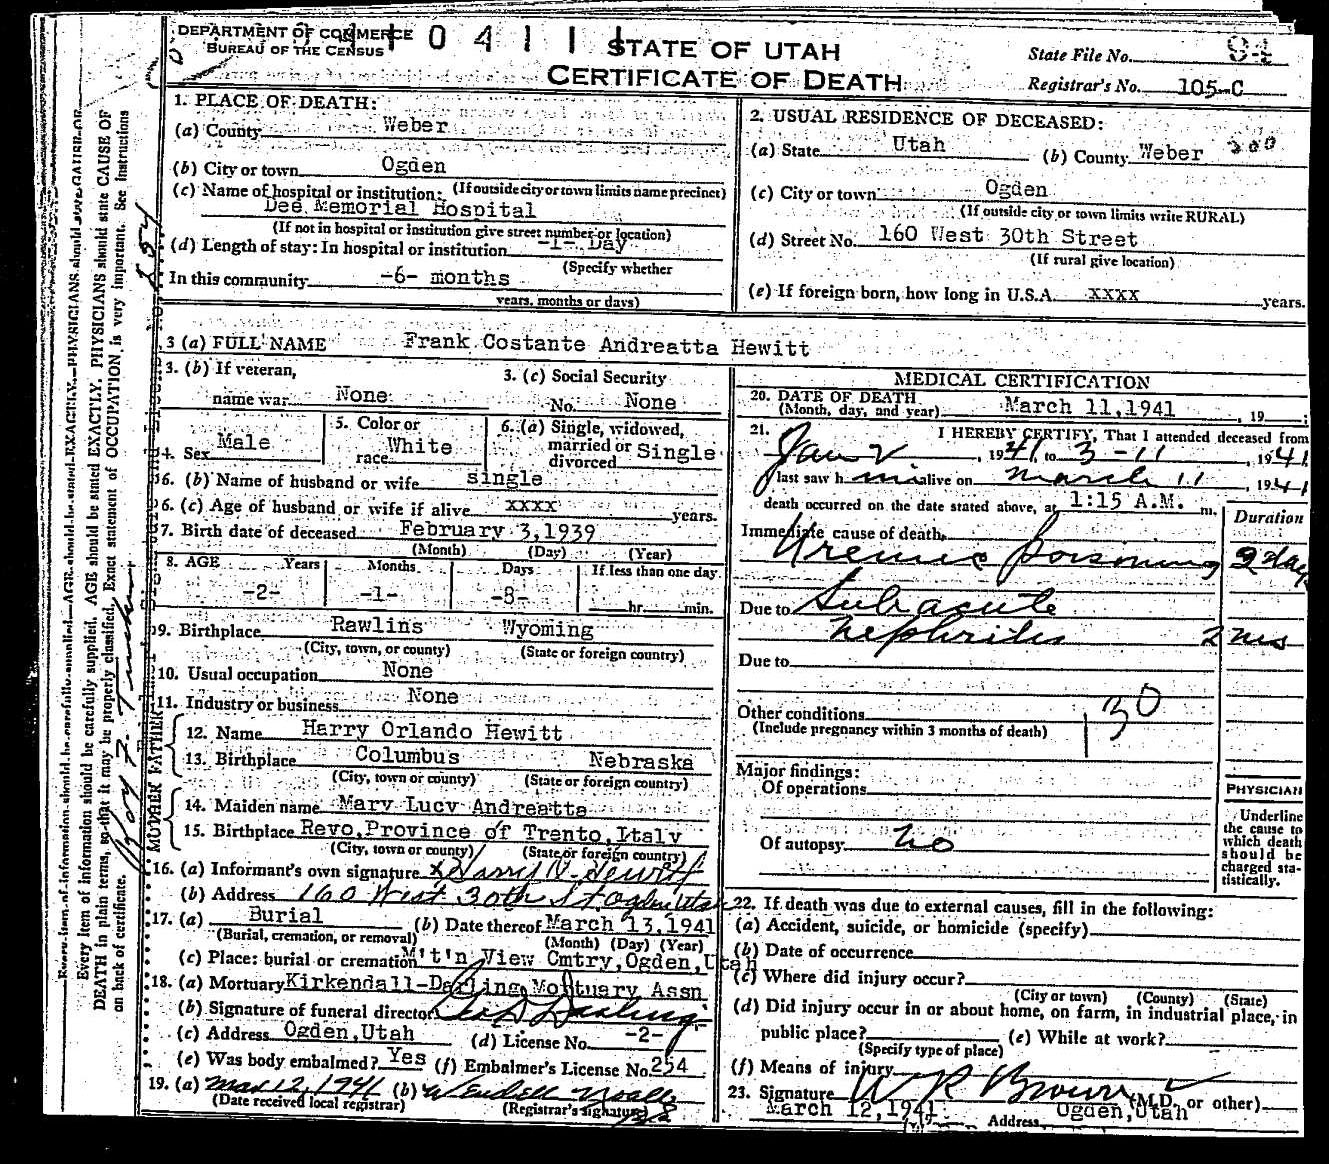 DEPARTMENT OF COMMERCE
BUREAU OF THE CENSUS
STATE OF UTAH
CERTIFICATE OF DEATH
State File No. 94
Registrar's No. 105-C
1. PLACE OF DEATH:
(a) County Weber
(b) City or town Ogden
(If outside city or town limits name precinct)
(c) Name of hospital or institution:
Dee Memorial Hospital
(If not in hospital or institution give street number or location)
(d) Length of stay: In hospital or institution -1- Day
(Specify whether
In this community -6- months
years, months or days)
2. USUAL RESIDENCE OF DECEASED:
(a) State Utah (b) County Weber
(c) City or town Ogden
(If outside city or town limits write RURAL)
(d) Street No. 160 West 30th Street
(If rural give location)
(e) If foreign born, how long in U.S.A. XXXX years.
3 (a) FULL NAME Frank Costante Andreatta Hewitt
3. (b) If veteran,
name war None
3. (c) Social Security
No. None
4. Sex Male
5. Color or
race White
6. (a) Single, widowed,
married or
divorced Single
6. (b) Name of husband or wife single
6. (c) Age of husband or wife if alive XXXX years.
7. Birth date of deceased February 3,1939
(Month) (Day) (Year)
8. AGE Years Months Days If less than one day
-2- -1- -8- hr. min.
9. Birthplace Rawlins Wyoming
(City, town, or county) (State or foreign country)
10. Usual occupation None
11. Industry or business None
FATHER
12. Name Harry Orlando Hewitt
13. Birthplace Columbus Nebraska
(City, town or county) (State or foreign country)
MOTHER
14. Maiden name Mary Lucy Andreatta
15. Birthplace Revo,Province of Trento,Italy
(City, town or county) (State or foreign country)
16. (a) Informant's own signature x Harry O. Hewitt
(b) Address 160 West 30th St Ogden Utah
17. (a) Burial (b) Date thereof March 13,1941
(Burial, cremation, or removal) (Month) (Day) (Year)
(c) Place: burial or cremation M't'n View Cmtry,Ogden,Utah
18. (a) Mortuary Kirkendall-Darling Mortuary Assn
(b) Signature of funeral director Geo D Darling
(c) Address Ogden,Utah (d) License No. -2-
(e) Was body embalmed? Yes (f) Embalmer's License No. 254
19. (a) Mar 12, 1941 (b) Wendell
(Date received local registrar) (Registrar's signature)
MEDICAL CERTIFICATION
20. DATE OF DEATH
(Month, day, and year) March 11,1941, 19 ;
21. I HEREBY CERTIFY, That I attended deceased from
Jan 2, 1941 to 3-11, 1941
last saw him alive on March 11, 1941
death occurred on the date stated above, at 1:15 A.M. m.
Duration
Immediate cause of death
Uremic poisoning 2 days
Due to Subacute
nephritis 2 mos
Due to
Other conditions
(Include pregnancy within 3 months of death)
130
Major findings:
Of operations
Of autopsy no
PHYSICIAN
Underline
the cause to
which death
should be
charged sta-
tistically.
22. If death was due to external causes, fill in the following:
(a) Accident, suicide, or homicide (specify)
(b) Date of occurrence
(c) Where did injury occur?
(City or town) (County) (State)
(d) Did injury occur in or about home, on farm, in industrial place, in
public place? (e) While at work?
(Specify type of place)
(f) Means of injury
23. Signature W R Brown (M.D. or other)
March 12,1941 Address Ogden,Utah
Every item of information should be carefully supplied. AGE should be stated EXACTLY. PHYSICIANS should state CAUSE OF
DEATH in plain terms, so that it may be properly classified. Exact statement of OCCUPATION is very important. See instructions
on back of certificate.